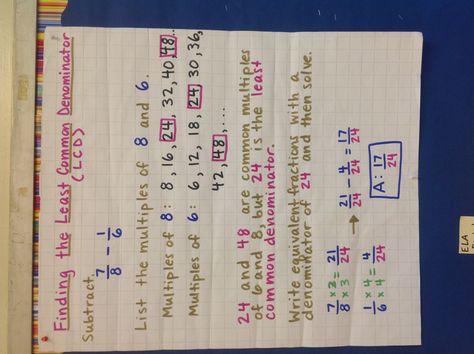 Finding the Least Common Denominator
(LCD)
Subtract.
7/8 - 1/6
List the multiples of 8 and 6.
Multiples of 8: 8, 16, 24, 32, 40, 48...
Multiples of 6: 6, 12, 18, 24 30, 36,
42, 48, ...
24 and 48 are common multiples
of 6 and 8, but 24 is the least
common denominator.
Write equivalent fractions with a
denominator of 24 and then solve.
7/8 × 3/3 = 21/24 → 21/24 - 4/24 = 17/24
1/6 × 4/4 = 4/24
A: 17/24
ELA